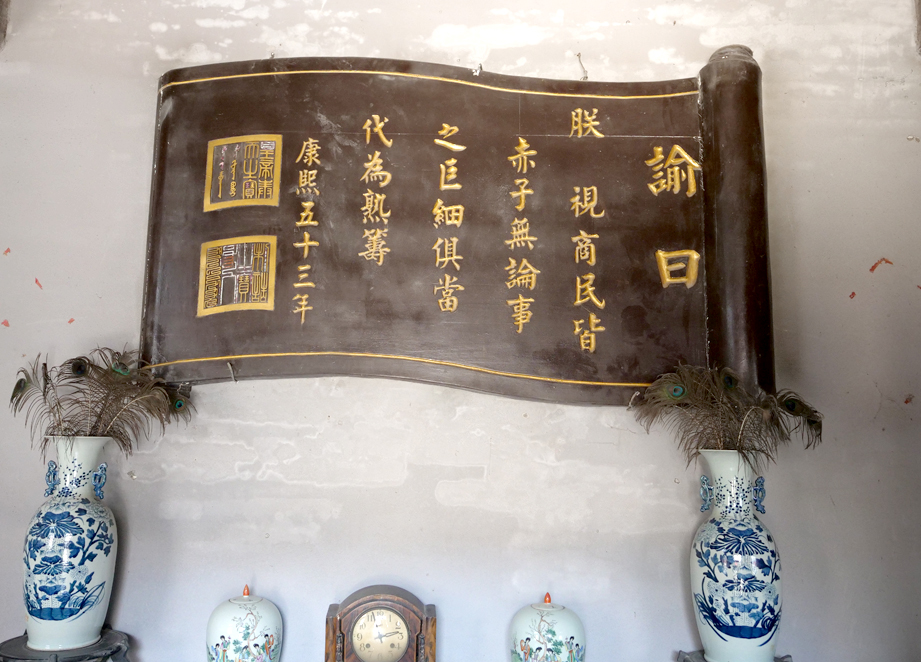 諭曰
朕視商民皆
赤子無論事
之巨細俱當
代為熟籌
康熙五十三年